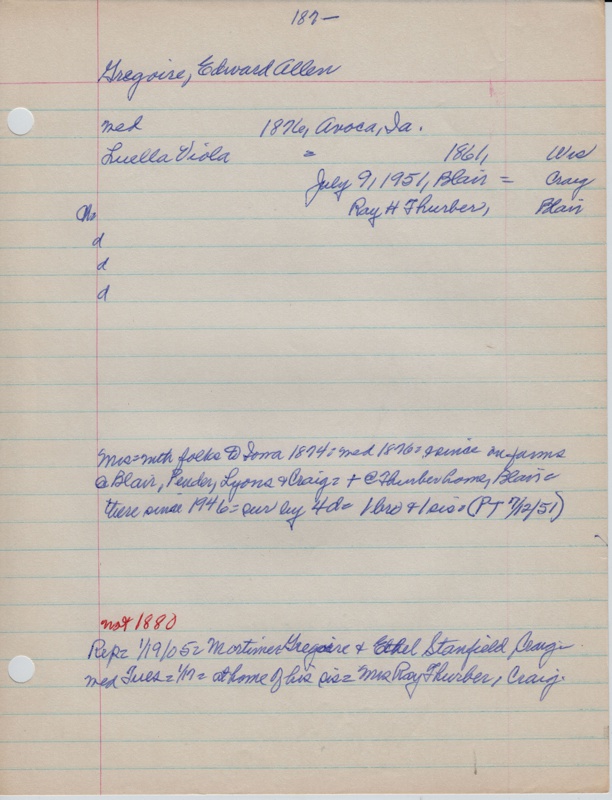 187-
Gregoire, Edward Allen
med 1876, Avoca, Ia.
Luella Viola = 1861, Wis
July 9, 1951, Blair = Craig
Ch Ray H Thurber, Blair
d
d
d
Mrs = with folks to Iowa 1874 = med 1876 = since on farms
@ Blair, Pender, Lyons & Craig = + @ Thurber home, Blair =
there since 1946 = sur by 4d = 1 bro & 1 sis = (PT 7/12/51)
not 1880
Rep = 1/19/05 = Mortimer Gregoire & Ethel Stanfield Craig
med Tues = 1/17 = at home of his sis = Mrs Ray Thurber, Craig.